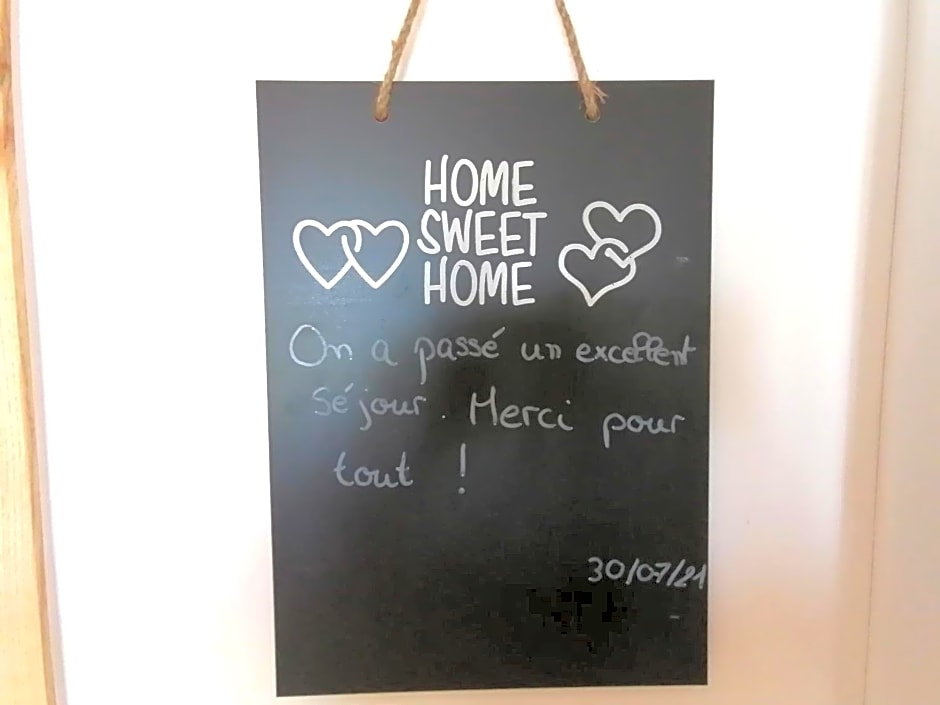 HOME
SWEET
HOME
On a passé un excellent
séjour. Merci pour
tout !
30/07/21